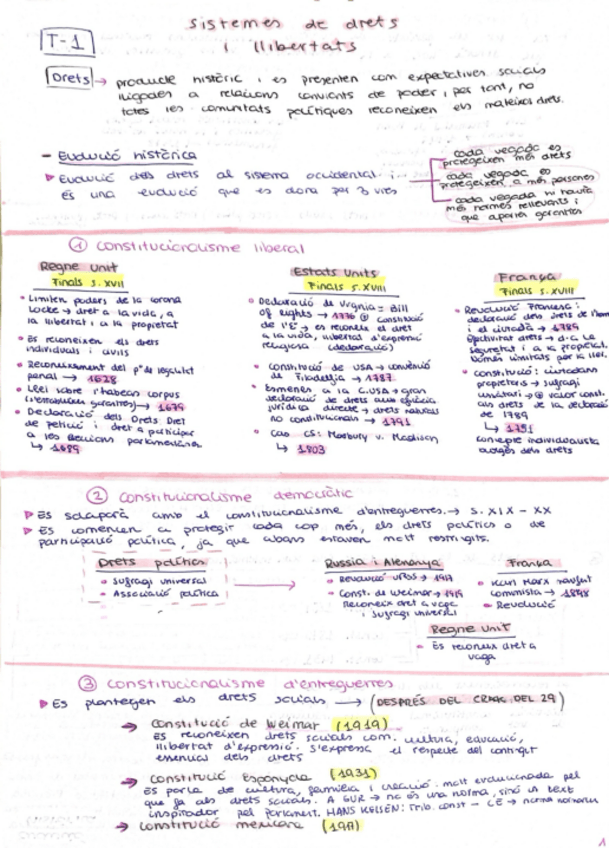 sistemes de drets
T-1
i llibertats
Drets → producte històric i es presenten com expectatives socials
lligades a relacions canviants de poder, per tant, no
totes les comunitats polítiques reconeixen els mateixos drets.
- Evolució històrica
Evolució dels drets al sistema occidental i
és una evolució que es dona per 3 vies
cada vegada es
protegeixen més drets
cada vegada es
protegeixen a més persones
cada vegada hi havia
més normes rellevants i
que aporten garanties
① constitucionalisme liberal
Regne Unit
Finals s. XVII
• Limiten poders de la corona
Locke → dret a la vida, a
la llibertat i a la propietat
• Es reconeixen els drets
individuals i civils
• Reconeixement del pº de legalitat
penal → 1628
• Llei sobre l'habeas corpus
→ 1679
• Declaració dels Drets Dret
de petició i dret a participar
a les eleccions parlamentàries
↳ 1689
Estats Units
Finals s. XVIII
• Declaració de Virginia = Bill
of Rights → 1776 constitució
de l'E → es reconeix el dret
a la vida, llibertat d'expressió
religiosa (declaració)
• Constitució de USA → convenció
de Filadelfia → 1787
• Esmenes a la C.USA → gran
declaració de drets amb eficàcia
jurídica directe → drets naturals
no constitucionals → 1791
• Cas CS: Marbury v. Madison
↳ 1803
França
Finals s. XVIII
• Revolució Francesa:
declaració dels drets de l'home
i el ciutadà → 1789
Objectivitat drets → a la
seguretat i a la propietat.
Només limitats per la llei.
• Constitució: ciutadans
propietaris → sufragi
→ valor const.
als drets de la declaració
de 1789
↳ 1791
concepte individualista
dels drets
② Constitucionalisme democràtic
Es solapara amb el constitucionalisme d'entreguerres → s. XIX - XX
Es comencen a protegir cada cop més, els drets polítics o de
participació política, ja que abans estaven molt restringits.
Drets polítics
• Sufragi universal
• Associació política
Russia i Alemanya
• Revolució URSS → 1917
• Const. de Weimar → 1919
Reconeix dret a vaga
i sufragi universal
França
• Karl Marx
comunista → 1848
• Revolució
Regne Unit
• Es reconeix dret a
vaga
③ Constitucionalisme d'entreguerres
Es plantegen els drets socials → (DESPRÉS DEL CRAK DEL 29)
→ Constitució de Weimar (1919)
Es reconeixen drets socials com. cultura, educació,
llibertat d'expressió. S'expressa el respecte del contingut
essencial dels drets
→ Constitució Espanyola (1931)
Es parla de cultura, família i creació. molt evolucionada pel
que fa als drets socials. A GUR → no és una norma, sinó un text
inspirador pel parlament. HANS KELSEN: Trib. const - CE → norma
→ Constitució mexicana (1917)
1